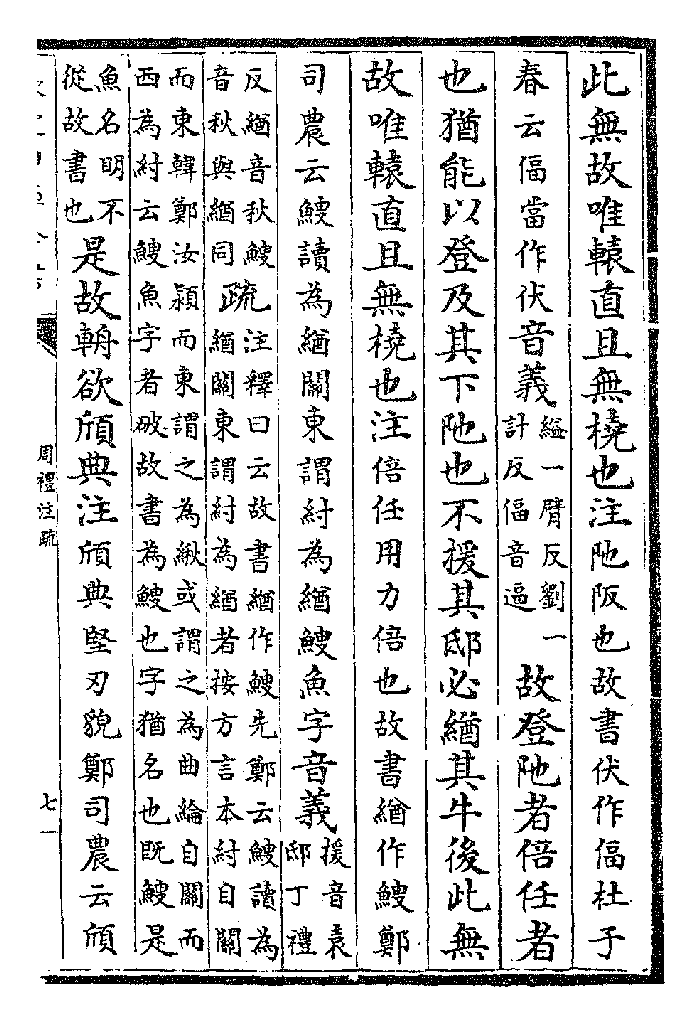 此無故唯轅直且無橈也注阤阪也故書伏作偪杜子
春云偪當作伏音義縊一臂反劉一
計反偪音逼
故登阤者倍任者
也猶能以登及其下阤也不援其邸必緧其牛後此無
故唯轅直且無橈也注倍任用力倍也故書緧作䲡鄭
司農云䲡讀為緧關東謂紂為緧䲡魚字音義援音袁
邸丁禮
反緧音秋䲡
音秋與緧同
疏注釋曰云故書緧作䲡先鄭云䲡讀為
緧關東謂紂為緧者按方言本紂自關
而東韓鄭汝潁而東謂之為緧或謂之為曲綸自關而
西為紂云䲡魚字者破故書為䲡也字猶名也既䲡是
魚名明不
從故書也
是故輈欲頎典注頎典堅刃貌鄭司農云頎
周禮注疏
七一